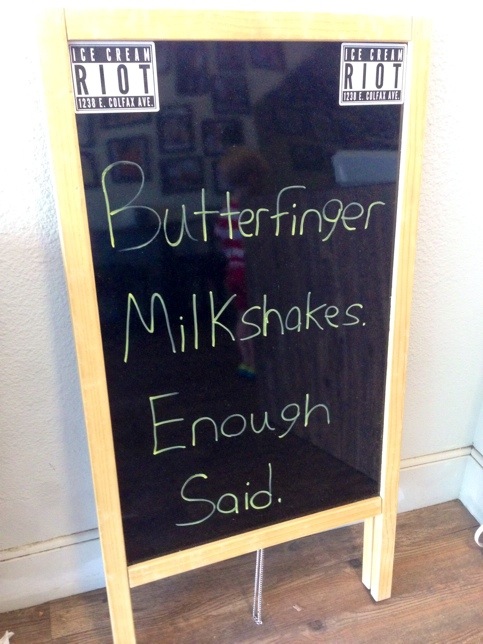 ICE CREAM
RIOT
1238 E. COLFAX AVE.
ICE CREAM
RIOT
1238 E. COLFAX AVE.
Butterfinger
Milkshakes.
Enough
Said.